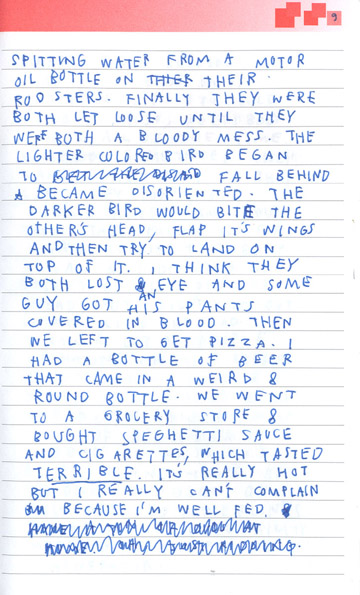 9
SPITTING WATER FROM A MOTOR
OIL BOTTLE ON THIER THEIR
ROOSTERS. FINALLY THEY WERE
BOTH LET LOOSE UNTIL THEY
WERE BOTH A BLOODY MESS. THE
LIGHTER COLORED BIRD BEGAN
TO FALL BEHIND
& BECAME DISORIENTED. THE
DARKER BIRD WOULD BITE THE
OTHER'S HEAD, FLAP IT'S WINGS
AND THEN TRY TO LAND ON
TOP OF IT. I THINK THEY
BOTH LOST AN EYE AND SOME
GUY GOT HIS PANTS
COVERED IN BLOOD. THEN
WE LEFT TO GET PIZZA. I
HAD A BOTTLE OF BEER
THAT CAME IN A WEIRD &
ROUND BOTTLE. WE WENT
TO A GROCERY STORE &
BOUGHT SPEGHETTI SAUCE
AND CIGARETTES, WHICH TASTED
TERRIBLE. IT'S REALLY HOT
BUT I REALLY CAN'T COMPLAIN
BECAUSE I'M WELL FED.